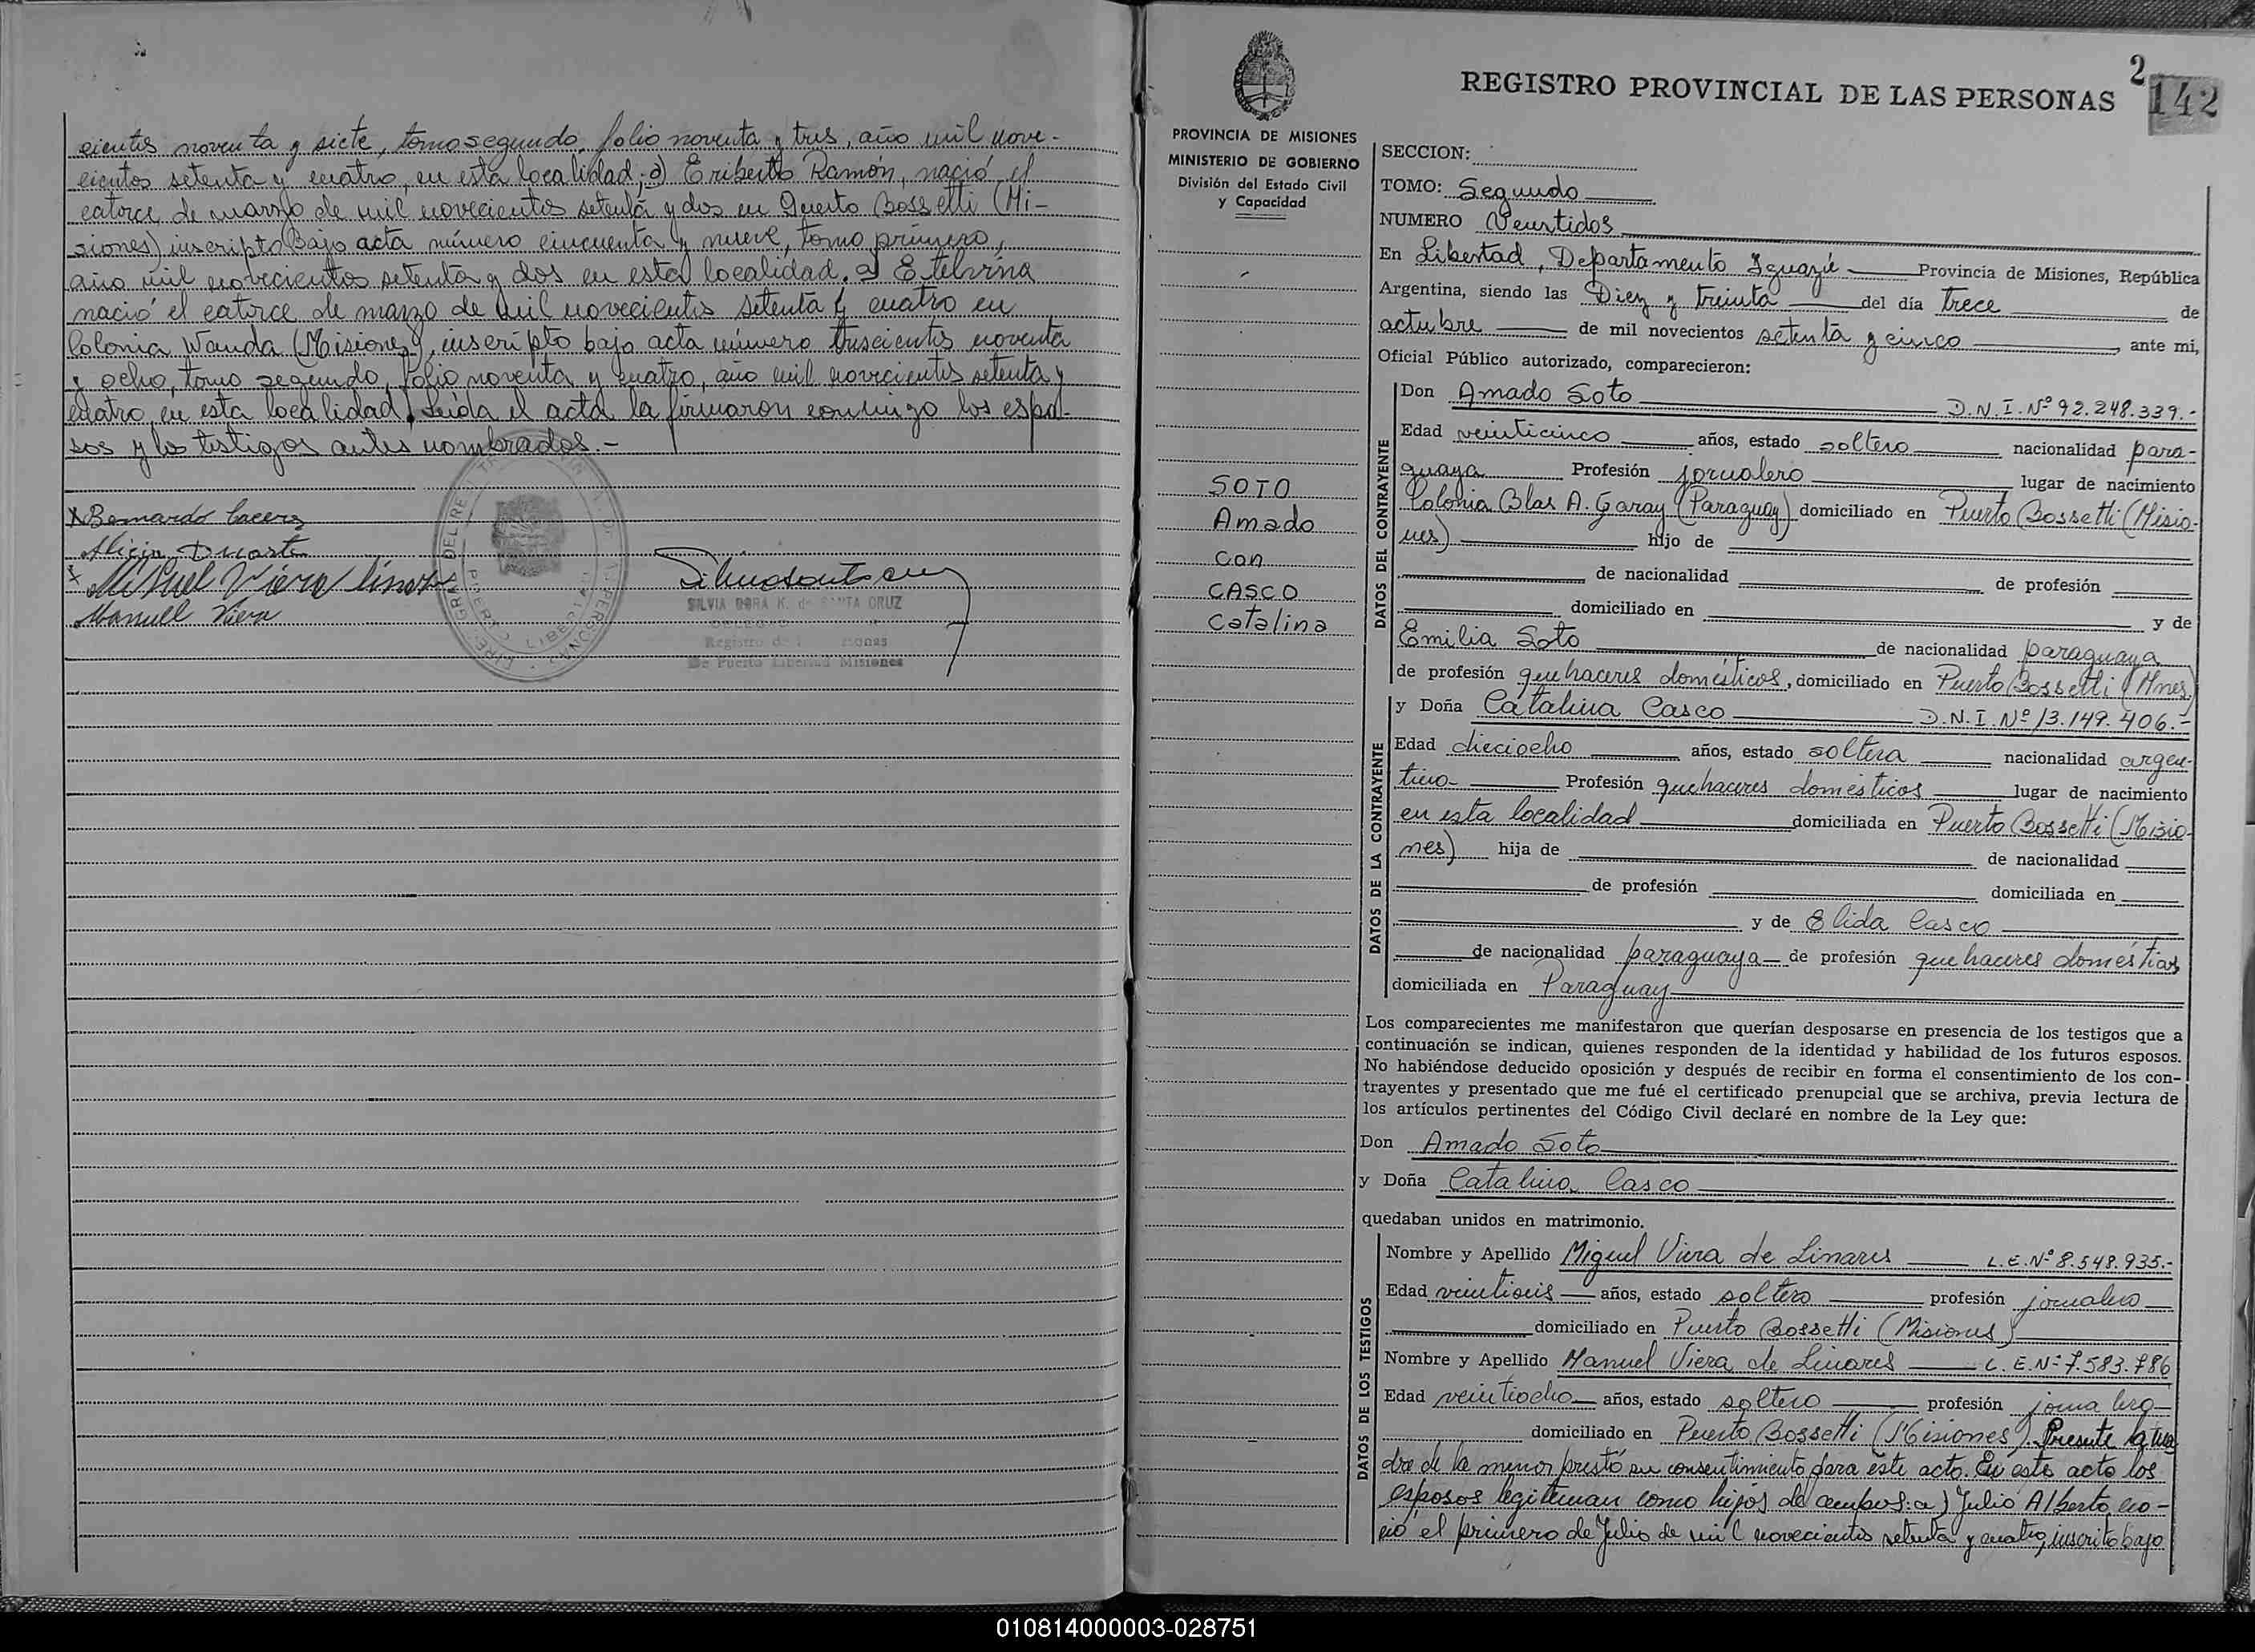 cientos noventa y siete, tomo segundo, folio noventa y tres, año mil nove-
cientos setenta y cuatro, en esta localidad; d) Eriberto Ramón, nació el
catorce de marzo de mil novecientos setenta y dos en Puerto Bossetti (Mi-
siones) inscripto bajo acta número cincuenta y nueve, tomo primero,
año mil novecientos setenta y dos en esta localidad. Etelvina
nació el catorce de marzo de mil novecientos setenta y cuatro en
Colonia Wanda (Misiones), inscripto bajo acta número trescientos noventa
y ocho, tomo segundo, folio noventa y cuatro, año mil novecientos setenta y
cuatro, en esta localidad. Leída el acta la firmaron conmigo los espo-
sos y los testigos antes nombrados.-
Bernardo Caceres
Alicia Duarte
Miguel Viera linare
Manuel Viera
SILVIA DORA K. de SANTA CRUZ
Registro de
de Puerto Libertad Misiones
2
142
REGISTRO PROVINCIAL DE LAS PERSONAS
PROVINCIA DE MISIONES
MINISTERIO DE GOBIERNO
División del Estado Civil
y Capacidad
SOTO
Amado
con
CASCO
Catalina
SECCION:
TOMO: Segundo
NUMERO Veintidos
En Libertad, Departamento Iguazú Provincia de Misiones, República
Argentina, siendo las Diez y treinta del día trece de
octubre de mil novecientos setenta y cinco, ante mi,
Oficial Público autorizado, comparecieron:
DATOS DEL CONTRAYENTE
Don Amado Soto D.N.I. Nº 92.248.339.-
Edad veinticinco años, estado soltero nacionalidad para-
guaya Profesión jornalero lugar de nacimiento
Colonia Blas A. Garay (Paraguay) domiciliado en Puerto Bossetti (Misio-
nes) hijo de
de nacionalidad de profesión
domiciliado en y de
Emilia Soto de nacionalidad paraguaya
de profesión quehaceres domésticos, domiciliado en Puerto Bossetti (Mnes)
DATOS DE LA CONTRAYENTE
y Doña Catalina Casco D.N.I. Nº 13.149.406.-
Edad dieciocho años, estado soltera nacionalidad argen-
tina Profesión quehaceres domésticos lugar de nacimiento
en esta localidad domiciliada en Puerto Bossetti (Misio-
nes) hija de de nacionalidad
de profesión domiciliada en
y de Elida Casco
de nacionalidad paraguaya de profesión quehaceres domésticos
domiciliada en Paraguay
Los comparecientes me manifestaron que querían desposarse en presencia de los testigos que a
continuación se indican, quienes responden de la identidad y habilidad de los futuros esposos.
No habiéndose deducido oposición y después de recibir en forma el consentimiento de los con-
trayentes y presentado que me fué el certificado prenupcial que se archiva, previa lectura de
los artículos pertinentes del Código Civil declaré en nombre de la Ley que:
Don Amado Soto
y Doña Catalina Casco
quedaban unidos en matrimonio.
DATOS DE LOS TESTIGOS
Nombre y Apellido Miguel Viera de Linares L.E. Nº 8.548.935.-
Edad veintiseis años, estado soltero profesión jornalero
domiciliado en Puerto Bossetti (Misiones)
Nombre y Apellido Manuel Viera de Linares L.E. Nº 7.583.786
Edad veintiocho años, estado soltero profesión jornalero
domiciliado en Puerto Bossetti (Misiones). Presente la ma
dre de la menor prestó su consentimiento para este acto. En este acto los
esposos legitiman como hijos de ambos: a) Julio Alberto, na-
ció el primero de Julio de mil novecientos setenta y cuatro, inscrito bajo
010814000003-028751